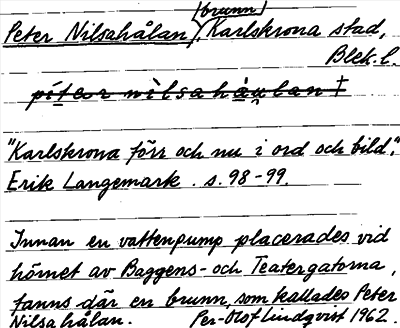 (brunn)
Peter Nilsahålan, Karlskrona stad,
Blek. l.
pi̱ter nìlsahå̱u̯lan †
"Karlskrona förr och nu i ord och bild".
Erik Langemark. s. 98-99.
Innan en vattenpump placerades vid
hörnet av Baggens- och Teatergatorna,
fanns där en brunn, som kallades Peter
Nilsahålan. Per-Olof Lindqvist 1962.